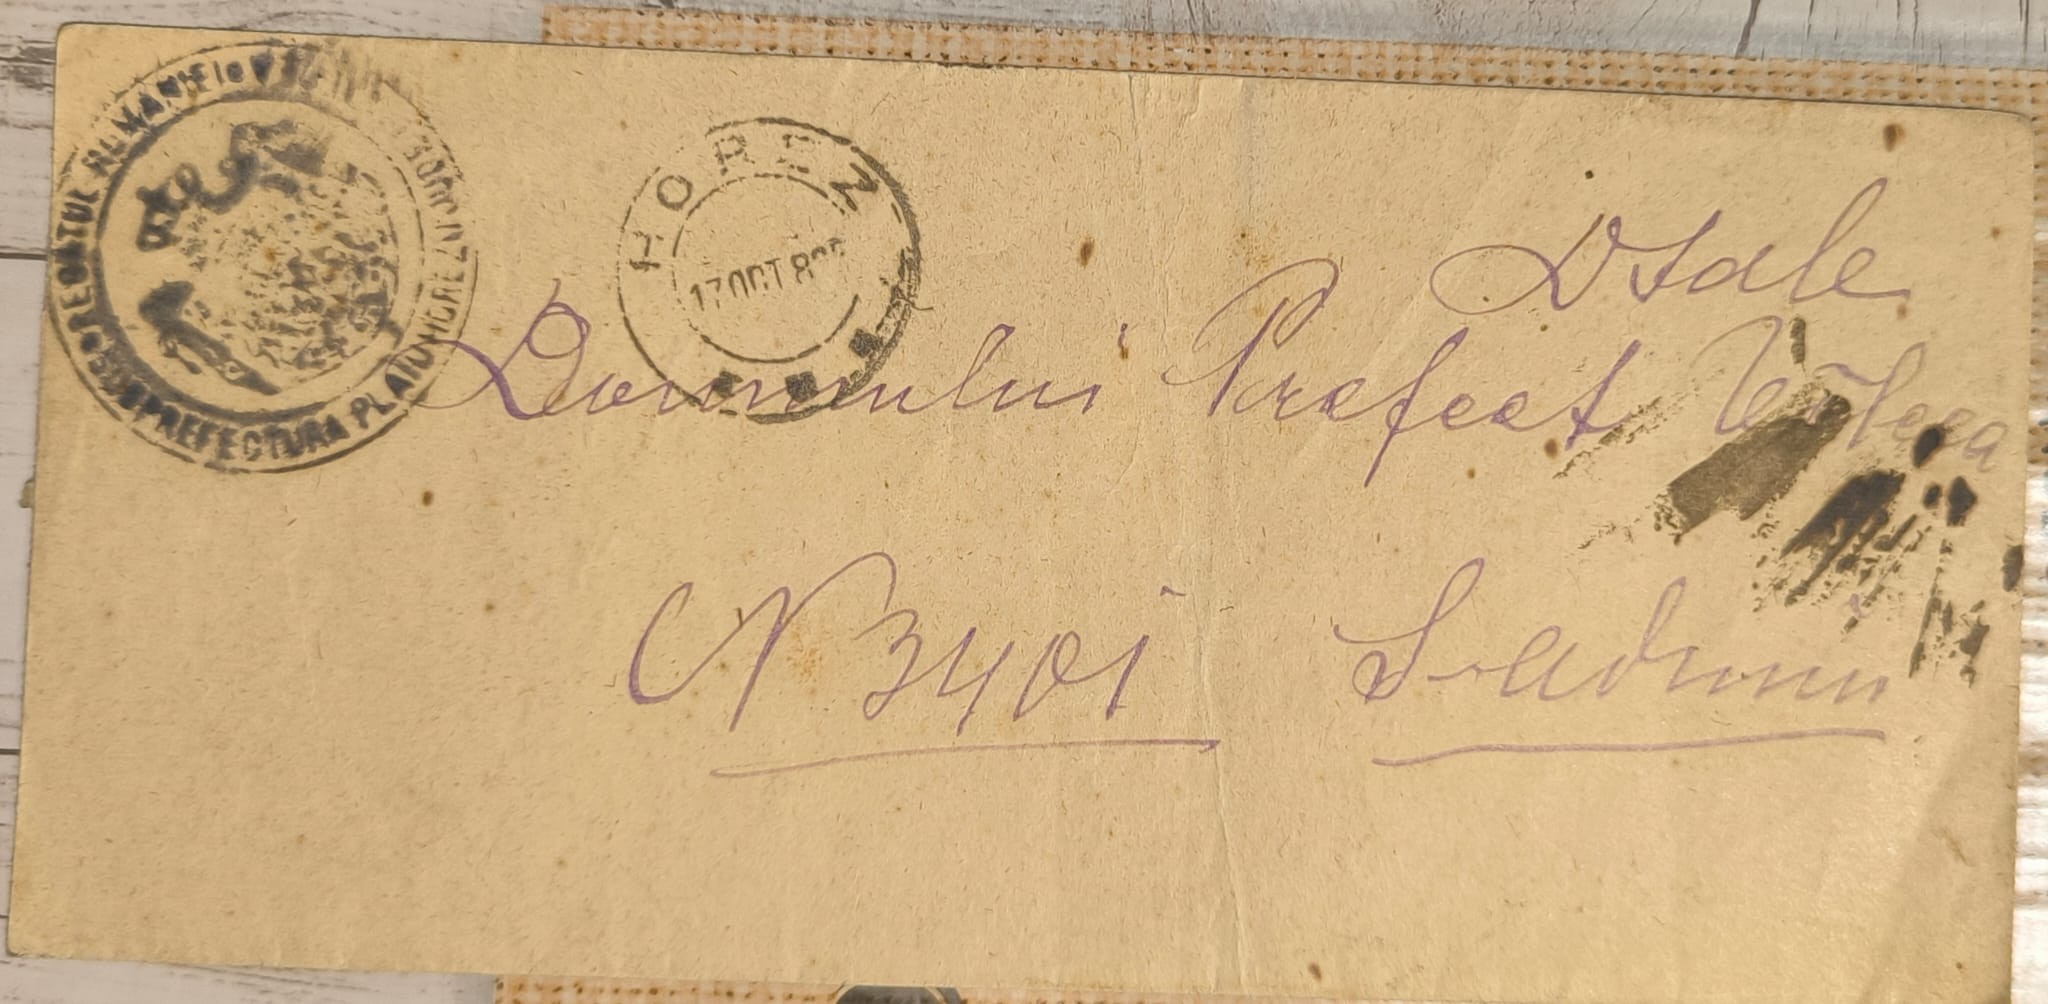 REGATUL ROMANIEI
SUBPREFECTURA PLAIUL HOREZU
HOREZ
17 OCT 89
Dsale
Domnului Prefect Vâlcea
N 3401